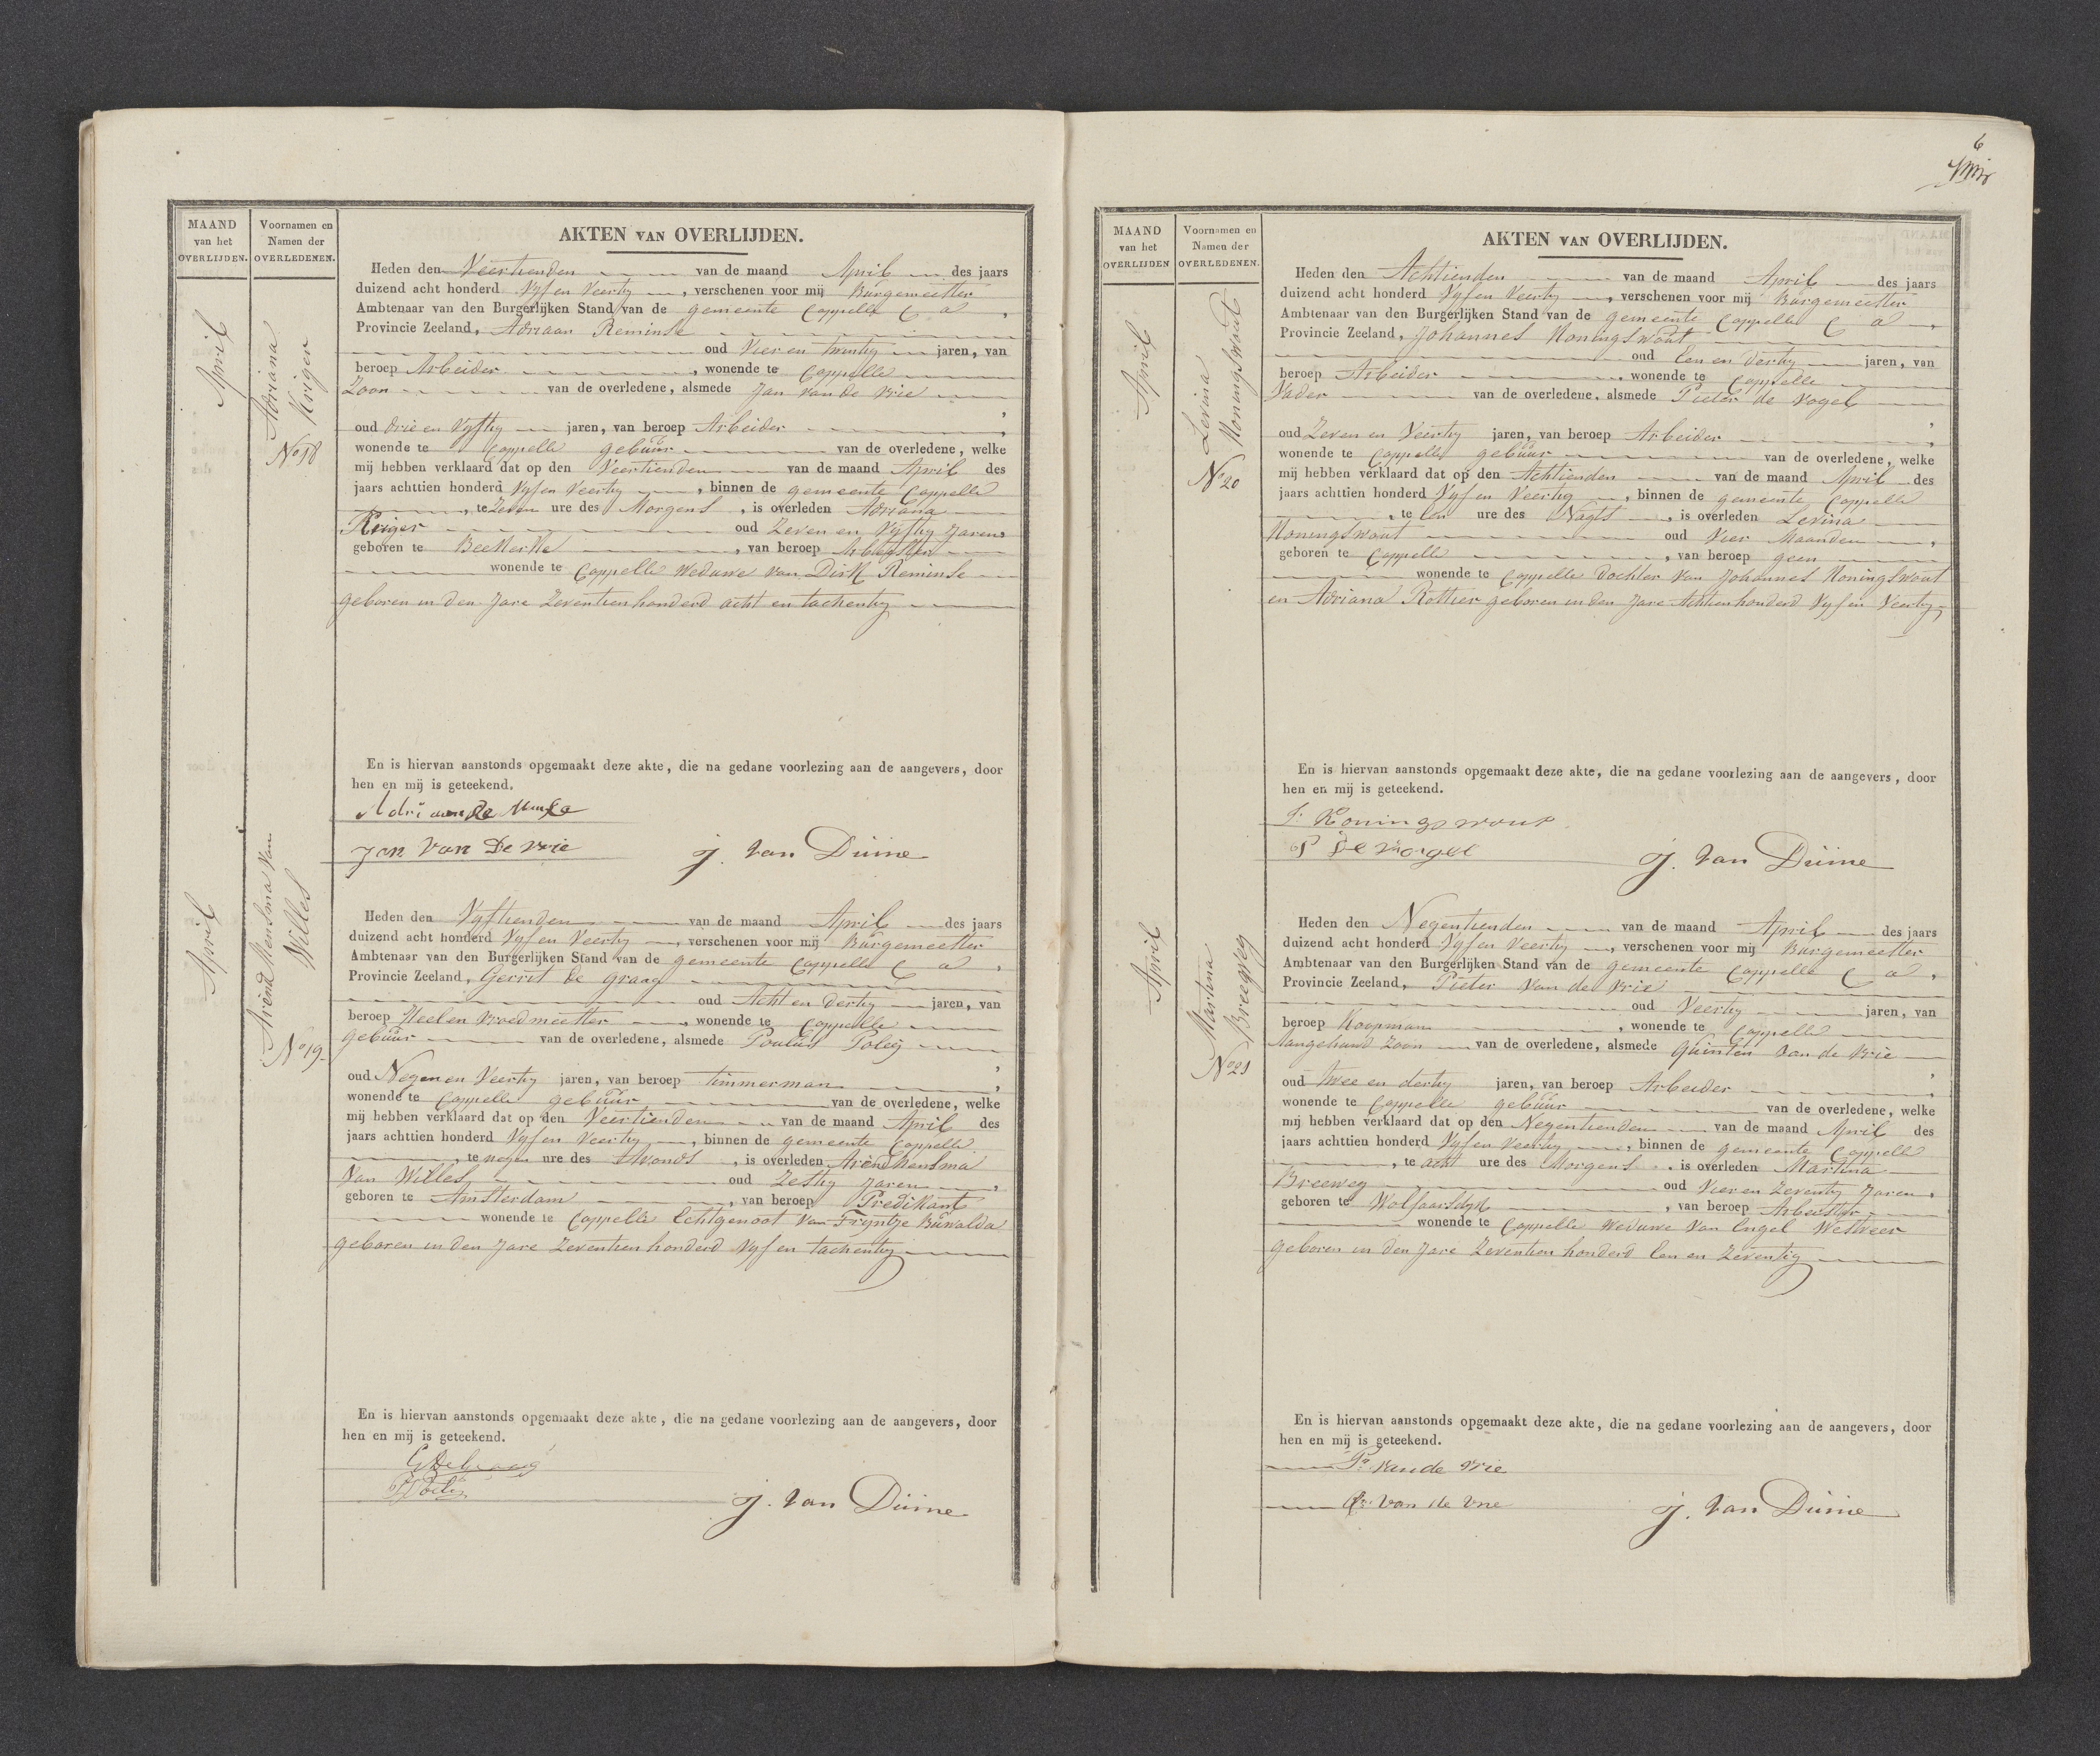 MAAND
van het
OVERLIJDEN.
Voornamen en
Namen der
OVERLEDENEN.
AKTEN VAN OVERLIJDEN.
April
Adriana
Kriger
No 18
Heden den Veertienden van de maand April des jaars
duizend acht honderd Vyf en Veertig, verschenen voor mij Burgemeester
Ambtenaar van den Burgerlijken Stand van de gemeente Cappelle C a,
Provincie Zeeland, Adriaan Reminse
oud Vier en twintig jaren, van
beroep Arbeider, wonende te Cappelle
Zoon van de overledene, alsmede Jan van de Vrie
oud drie en Vyftig jaren, van beroep Arbeider,
wonende te Cappelle gebuur van de overledene, welke
mij hebben verklaard dat op den Veertienden van de maand April des
jaars achttien honderd Vyf en Veertig, binnen de gemeente Cappelle
, te Zeven ure des Morgens, is overleden Adriana
Kriger oud Zeven en Vyftig Jaren,
geboren te Beekerke, van beroep Arbeidster
wonende te Cappelle Weduwe van Dirk Reminse
geboren in den Jare Zeventien honderd acht en tachentig
En is hiervan aanstonds opgemaakt deze akte, die na gedane voorlezing aan de aangevers, door
hen en mij is geteekend.
Jan Van De Vrie J. Van Duine
April
Arend Mensma Van
Willes
No 19.
Heden den Vyftienden van de maand April des jaars
duizend acht honderd Vyf en Veertig, verschenen voor mij Burgemeester
Ambtenaar van den Burgerlijken Stand van de gemeente Cappelle C a,
Provincie Zeeland, Gerrit de Graag
oud Acht en dertig jaren, van
beroep Heel en Vroedmeester, wonende te Cappelle
gebuur van de overledene, alsmede Poulus Poley
oud Negen en Veertig jaren, van beroep timmerman,
wonende te Cappelle gebuur van de overledene, welke
mij hebben verklaard dat op den Veertienden van de maand April des
jaars achttien honderd Vyf en Veertig, binnen de gemeente Cappelle
, te negen ure des Avonds, is overleden Arend Mensma
Van Willes oud Zestig Jaren,
geboren te Amsterdam, van beroep Predikant
wonende te Cappelle Echtgenoot van Tryntje Buwalda
geboren in den Jare Zeventien honderd Vyf en tachentig
En is hiervan aanstonds opgemaakt deze akte, die na gedane voorlezing aan de aangevers, door
hen en mij is geteekend.
G de Graag
J. Van Duine
6
MAAND
van het
OVERLIJDEN
Voornamen en
Namen der
OVERLEDENEN.
AKTEN VAN OVERLIJDEN.
April
Levina
Koningswout
No 20
Heden den Achtienden van de maand April des jaars
duizend acht honderd Vyf en Veertig, verschenen voor mij Burgemeester
Ambtenaar van den Burgerlijken Stand van de gemeente Cappelle C a,
Provincie Zeeland, Johannes Koningswout
oud Een en dertig jaren, van
beroep Arbeider, wonende te Cappelle
Vader van de overledene, alsmede Pieter de Vogel
oud Zeven en Veertig jaren, van beroep Arbeider,
wonende te Cappelle gebuur van de overledene, welke
mij hebben verklaard dat op den Achtienden van de maand April des
jaars achttien honderd Vyf en Veertig, binnen de gemeente Cappelle
, te Een ure des Nagts, is overleden Levina
Koningswout oud Vier Maanden,
geboren te Cappelle, van beroep geen
wonende te Cappelle dochter van Johannes Koningswout
en Adriana Rottier geboren in den Jare Achtien honderd Vyf en Veertig
En is hiervan aanstonds opgemaakt deze akte, die na gedane voorlezing aan de aangevers, door
hen en mij is geteekend.
J. Koningswout
P de Vogel J. Van Duine
April
Martina
Breeweg
No 21
Heden den Negentienden van de maand April des jaars
duizend acht honderd Vyf en Veertig, verschenen voor mij Burgemeester
Ambtenaar van den Burgerlijken Stand van de gemeente Cappelle C a,
Provincie Zeeland, Pieter Van de Vrie
oud Veertig jaren, van
beroep Koopman, wonende te Cappelle
Aangehuwd Zoon van de overledene, alsmede Quinten van de Vrie
oud twee en dertig jaren, van beroep Arbeider,
wonende te Cappelle gebuur van de overledene, welke
mij hebben verklaard dat op den Negentienden van de maand April des
jaars achttien honderd Vyf en Veertig, binnen de gemeente Cappelle
, te acht ure des Morgens, is overleden Martina
Breeweg oud Vier en Zeventig Jaren,
geboren te Wolfaarsdyk, van beroep Arbeidster
wonende te Cappelle Weduwe van Engel Westveer
geboren in den Jare Zeventien honderd Een en Zeventig
En is hiervan aanstonds opgemaakt deze akte, die na gedane voorlezing aan de aangevers, door
hen en mij is geteekend.
Pr. Van de Vrie
Qn. Van de Vrie J. Van Duine